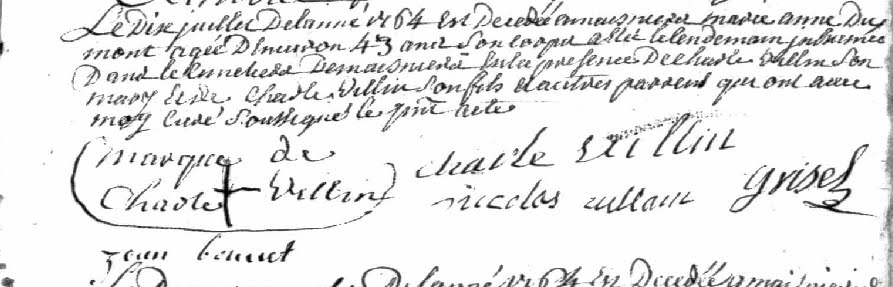 Le Dix juillet Delanné 1764 Est Decedée amaisnieres marie anne Du
mont agée D'Environ 43 ans Son corps a Eté le lendemain inhumée
Dans le Cimetiere Demaisnieres En la presence De charle villin Son
mary Et De Charle villin Son fils Et autres parrens qui ont avec
moy Curé Soussigné le pnt acte
marque de charle villin
Charle villin nicolas villain grisel
jean bonnet
Delanné 1764 Est Decedée amaisnieres